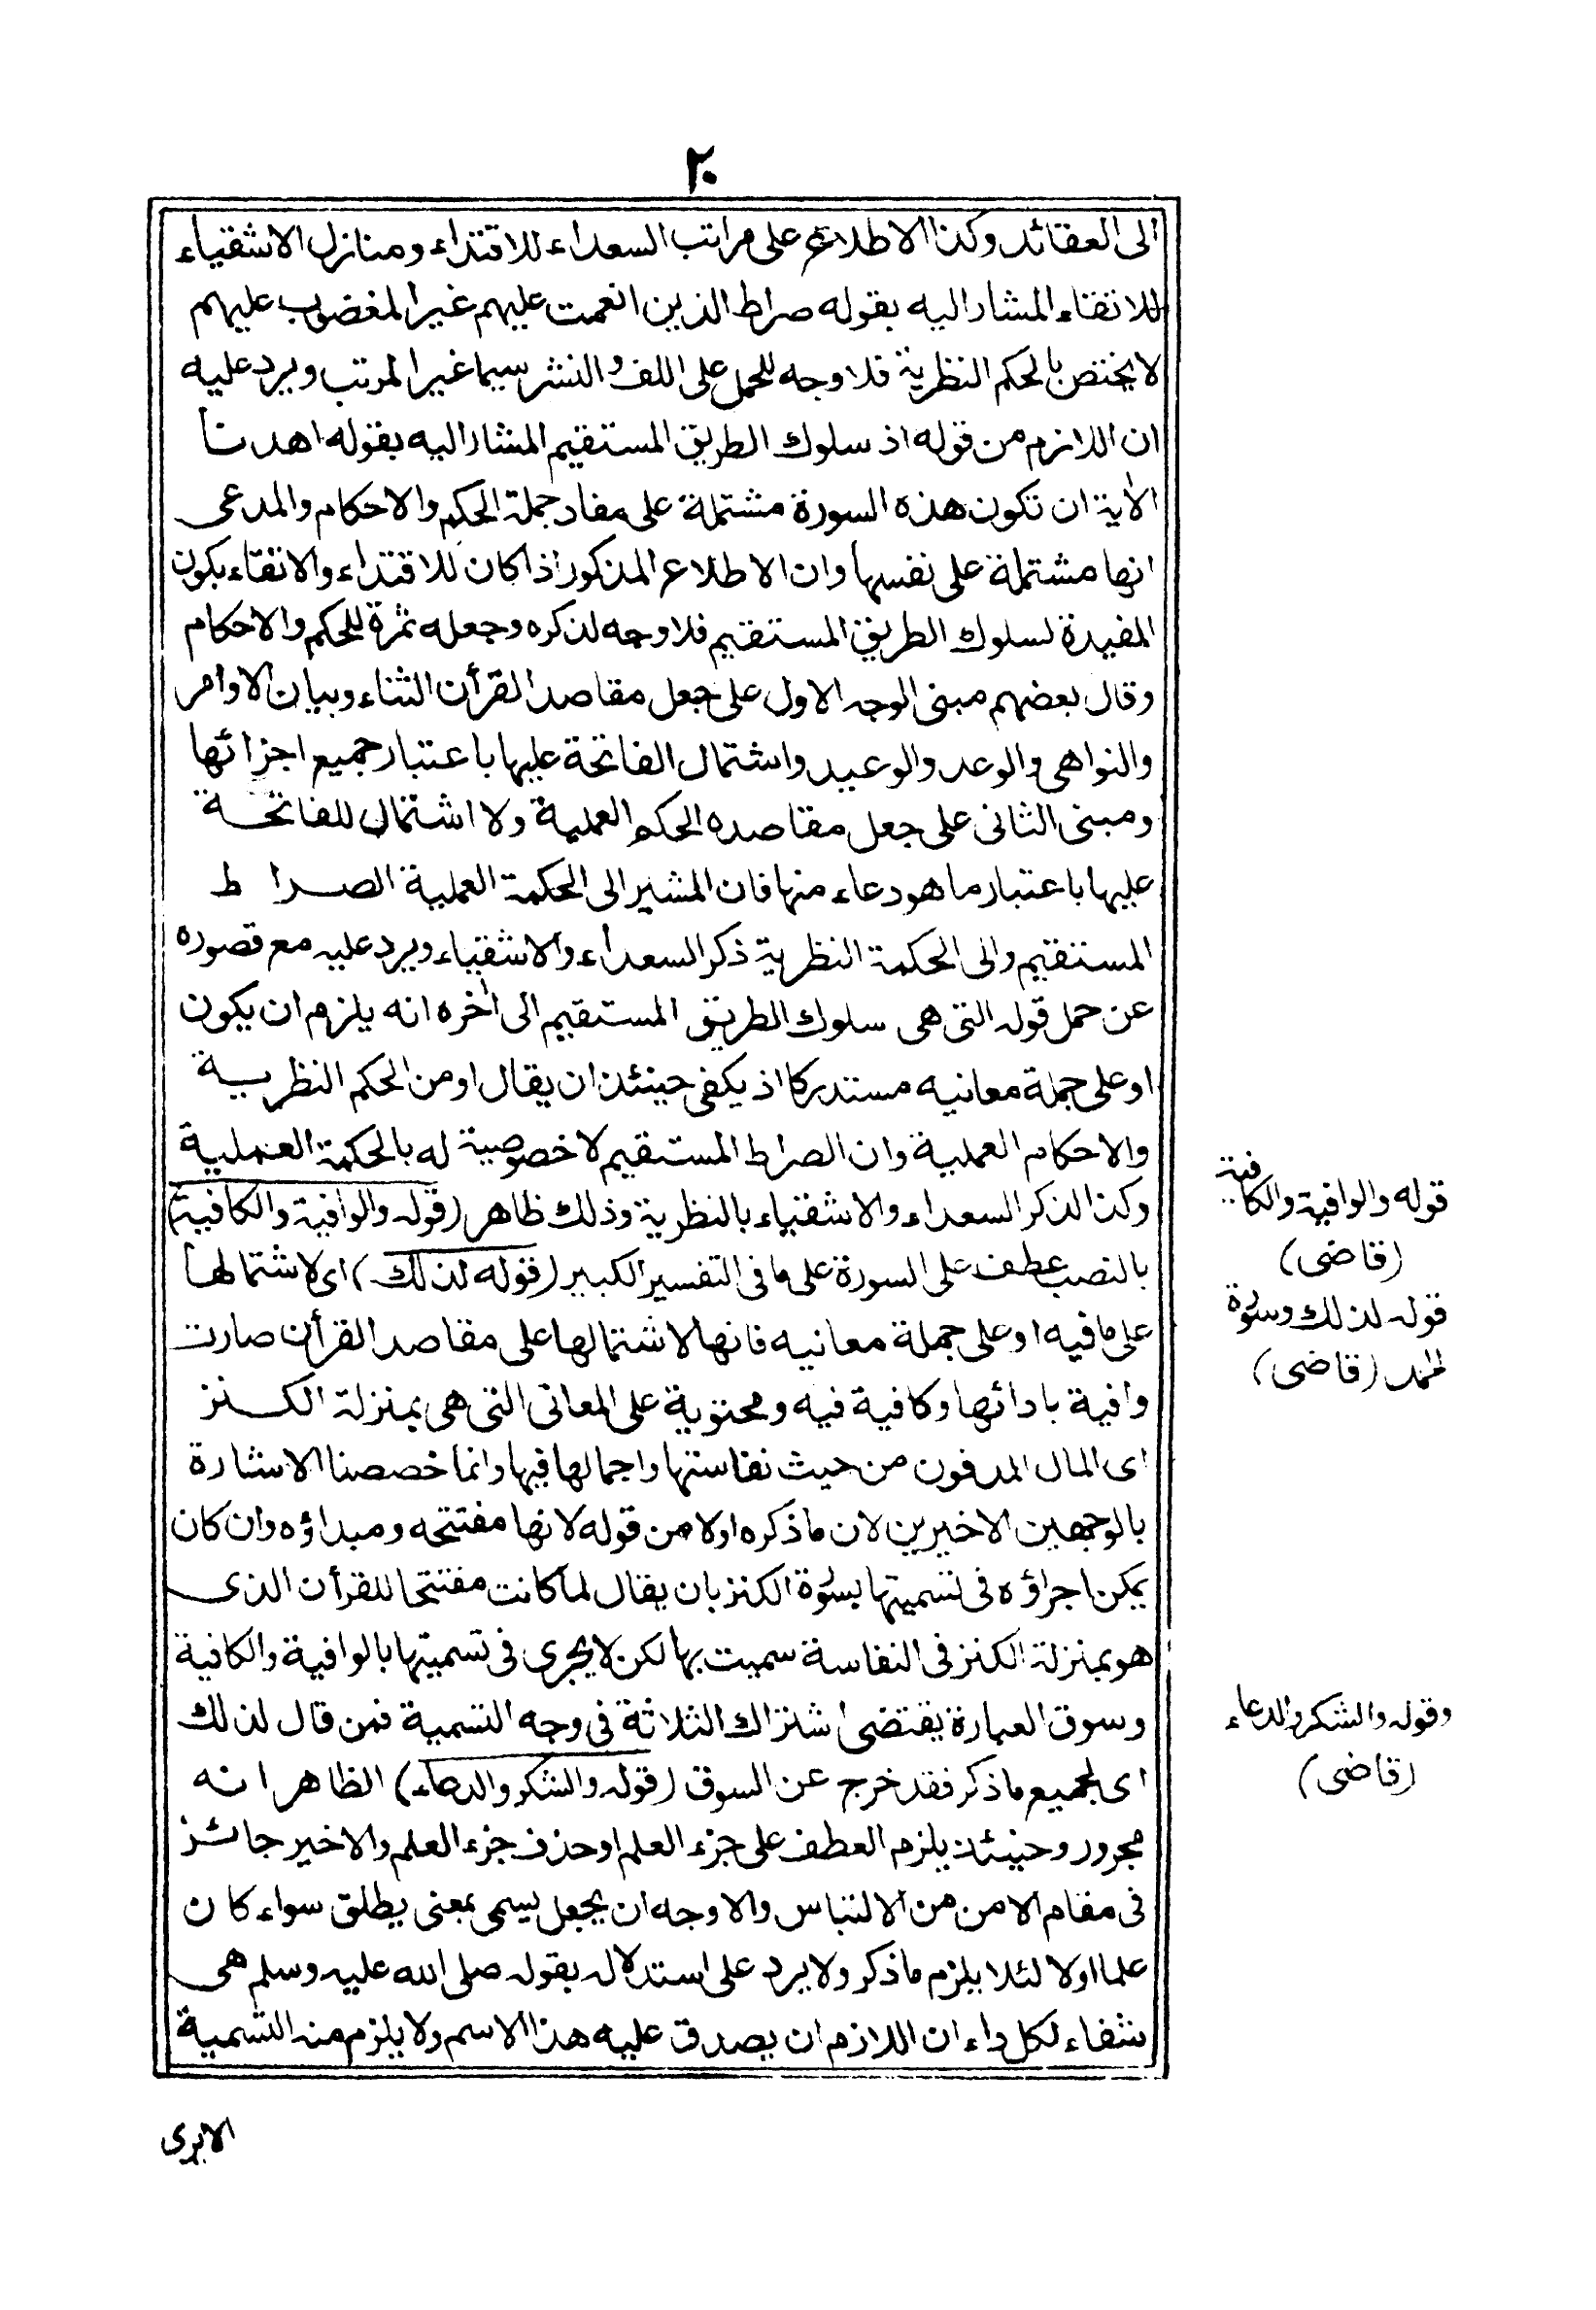 ٢٠
الى العقائد وكذا الاطلاع على مراتب السعداء للاقتداء ومنازل الاشقياء
للاتقاء المشار اليه بقوله صراط الذين انعمت عليهم غير المغضوب عليهم
لا يختص بالحكم النظرية فلا وجه للحمل على اللف والنشر سيما غير المرتب ويرد عليه
ان اللازم من قوله اذ سلوك الطريق المستقيم المشار اليه بقوله اهدنا
الآية ان تكون هذه السورة مشتملة على مفاد جملة الحكم والاحكام والمدعى
انها مشتملة على نفسها وان الاطلاع المذكور اذا كان للاقتداء والاتقاء يكون
المفيدة لسلوك الطريق المستقيم فلا وجه لذكره وجعله ثمرة للحكم والاحكام
وقال بعضهم مبنى الوجه الاول على جعل مقاصد القرأن الثناء وبيان الاوامر
والنواهى والوعد والوعيد واشتمال الفاتحة عليها باعتبار جميع اجزائها
ومبنى الثانى على جعل مقاصده الحكم العملية ولا اشتمال للفاتحة
عليها باعتبار ما هو دعاء منها فان المشير الى الحكمة العملية الصراط
المستقيم والى الحكمة النظرية ذكر السعداء والاشقياء ويرد عليه مع قصوره
عن حمل قوله التى هى سلوك الطريق المستقيم الى أخره انه يلزم ان يكون
او على جملة معانيه مستدركا اذ يكفى حينئذ ان يقال او من الحكم النظرية
والاحكام العملية وان الصراط المستقيم لا خصوصية له بالحكمة العملية
وكذا لذكر السعداء والاشقياء بالنظرية وذلك ظاهر (قوله والوافية والكافية)
بالنصب عطف على السورة على ما فى التفسير الكبير (قوله لذلك) اى لاشتمالها
على ما فيه او على جملة معانيه فانها لاشتمالها على مقاصد القرأن صارت
وافية بادائها وكافية فيه ومحتوية على المعانى التى هى بمنزلة الكنز
اى المال المدفون من حيث نفاستها واجمالها فيها وانما خصصنا الاشارة
بالوجهين الاخيرين لان ما ذكره اولا من قوله لانها مفتتحه ومبداؤه وان كان
يمكن اجراؤه فى تسميتها بسورة الكنز بان يقال لما كانت مفتتحا للقرأن الذى
هو بمنزلة الكنز فى النفاسة سميت بها لكن لا يجرى فى تسميتها بالوافية والكافية
وسوق العبارة يقتضى اشتراك الثلاثة فى وجه التسمية فمن قال لذلك
اى لجميع ما ذكر فقد خرج عن السوق (قوله والشكر والدعاء) الظاهر انه
مجرور وحينئذ يلزم العطف على جزء العلم او حذف جزء العلم والاخير جائز
فى مقام الامن من الالتباس والاوجه ان يجعل يسمى بمعنى يطلق سواء كان
علما اولا لئلا يلزم ما ذكر ولا يرد على استدلاله بقوله صلى الله عليه وسلم هى
شفاء لكل داء ان اللازم ان يصدق عليه هذا الاسم ولا يلزم منه التسمية
قوله والوافية والكافية
(قاضى)
قوله لذلك وسورة
الحمد (قاضى)
وقوله والشكر والدعاء
(قاضى)